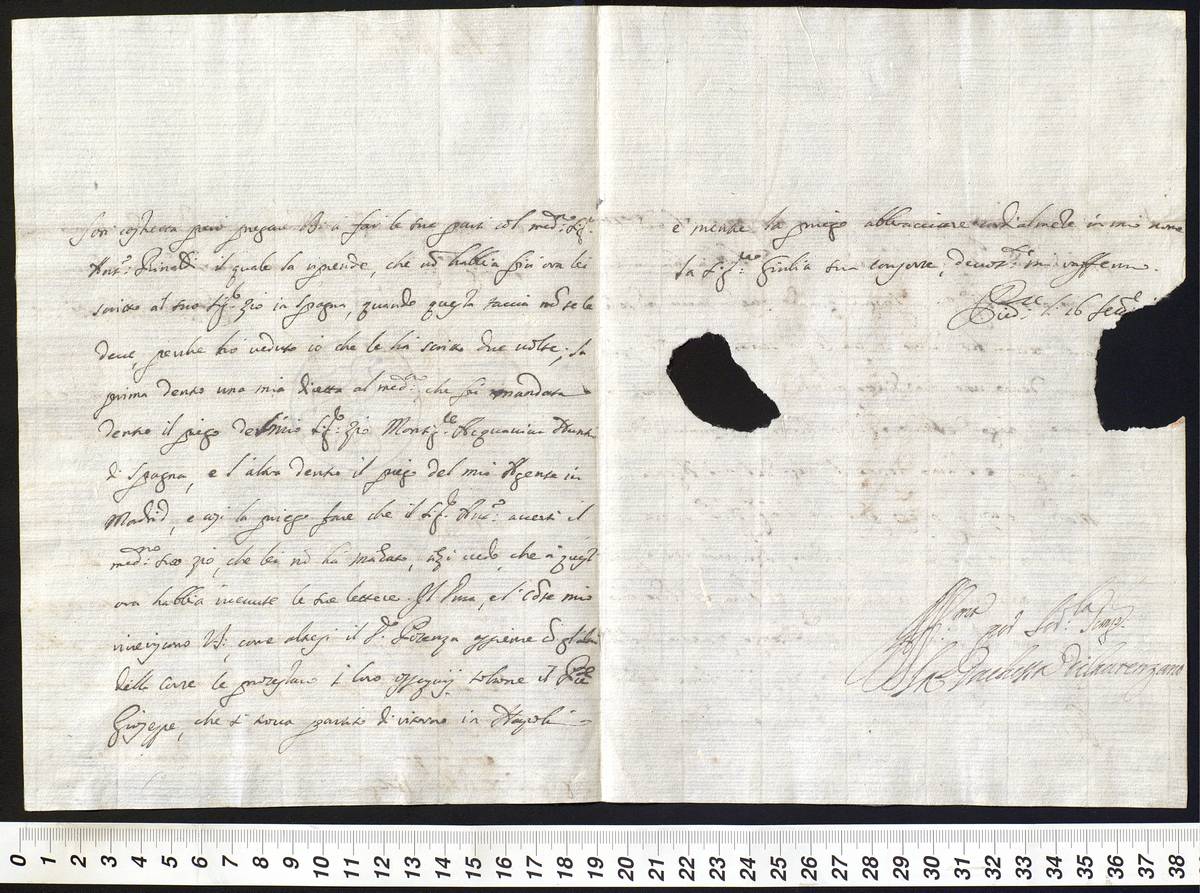 pregar VS: a far le sue parti col med.mo Sig.r
Ant.o Rinaldi il quale la riprende, che nõ habbia fin ora lei
scritto al suo Sig.r Zio in Spagna, quando questa taccia nõ se le
deve, perche hò veduto io che le hà scritto due volte. La
prima dentro una mia diretta al med.mo che fù mandata
dentro il piego del mio Sig.r Zio Monsig.re Acquaviva
di Spagna, e l'altra dentro il piego del mio Agente in
Madrid, e così la priego fare che il Sig.r Ant.o accerti il
med.mo suo Zio, che lei nõ hà mãcato, anzi credo, che a quest'
ora habbia ricevute le sue lettere. Il Duca, e 'l Côte mio
riveriscono VS: come altresi il Potenza assieme cõ gl'altri
della Corte le protestano i loro ossequij, toltone il P.re
Giuseppe, che si trova partito di ritorno in Napoli
e mentre la priego abbracciare cordialmẽte in mio nome
la Sig.ra Giulia sua consorte, devot.te mi raffermo.
Pied.te li 16
Aff.ma per ser.la sempre
La Duchessa di Laurenzano
0 1 2 3 4 5 6 7 8 9 10 11 12 13 14 15 16 17 18 19 20 21 22 23 24 25 26 27 28 29 30 31 32 33 34 35 36 37 38